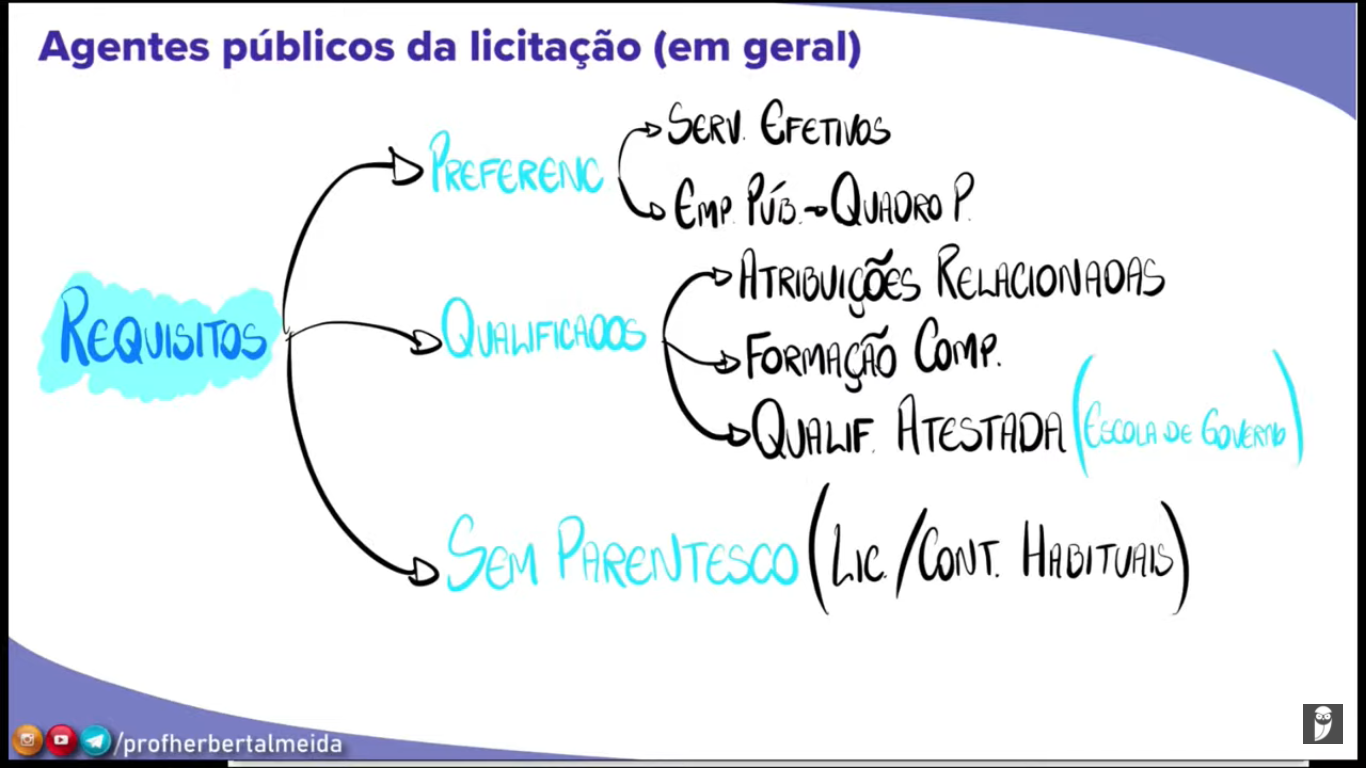 Agentes públicos da licitação (em geral)
REQUISITOS
PREFERENC
SERV. EFETIVOS
EMP. PÚB. → QUADRO P.
QUALIFICADOS
ATRIBUIÇÕES RELACIONADAS
FORMAÇÃO COMP.
QUALIF. ATESTADA (ESCOLA DE GOVERNO)
SEM PARENTESCO (LIC./CONT. HABITUAIS)
/profherbertalmeida